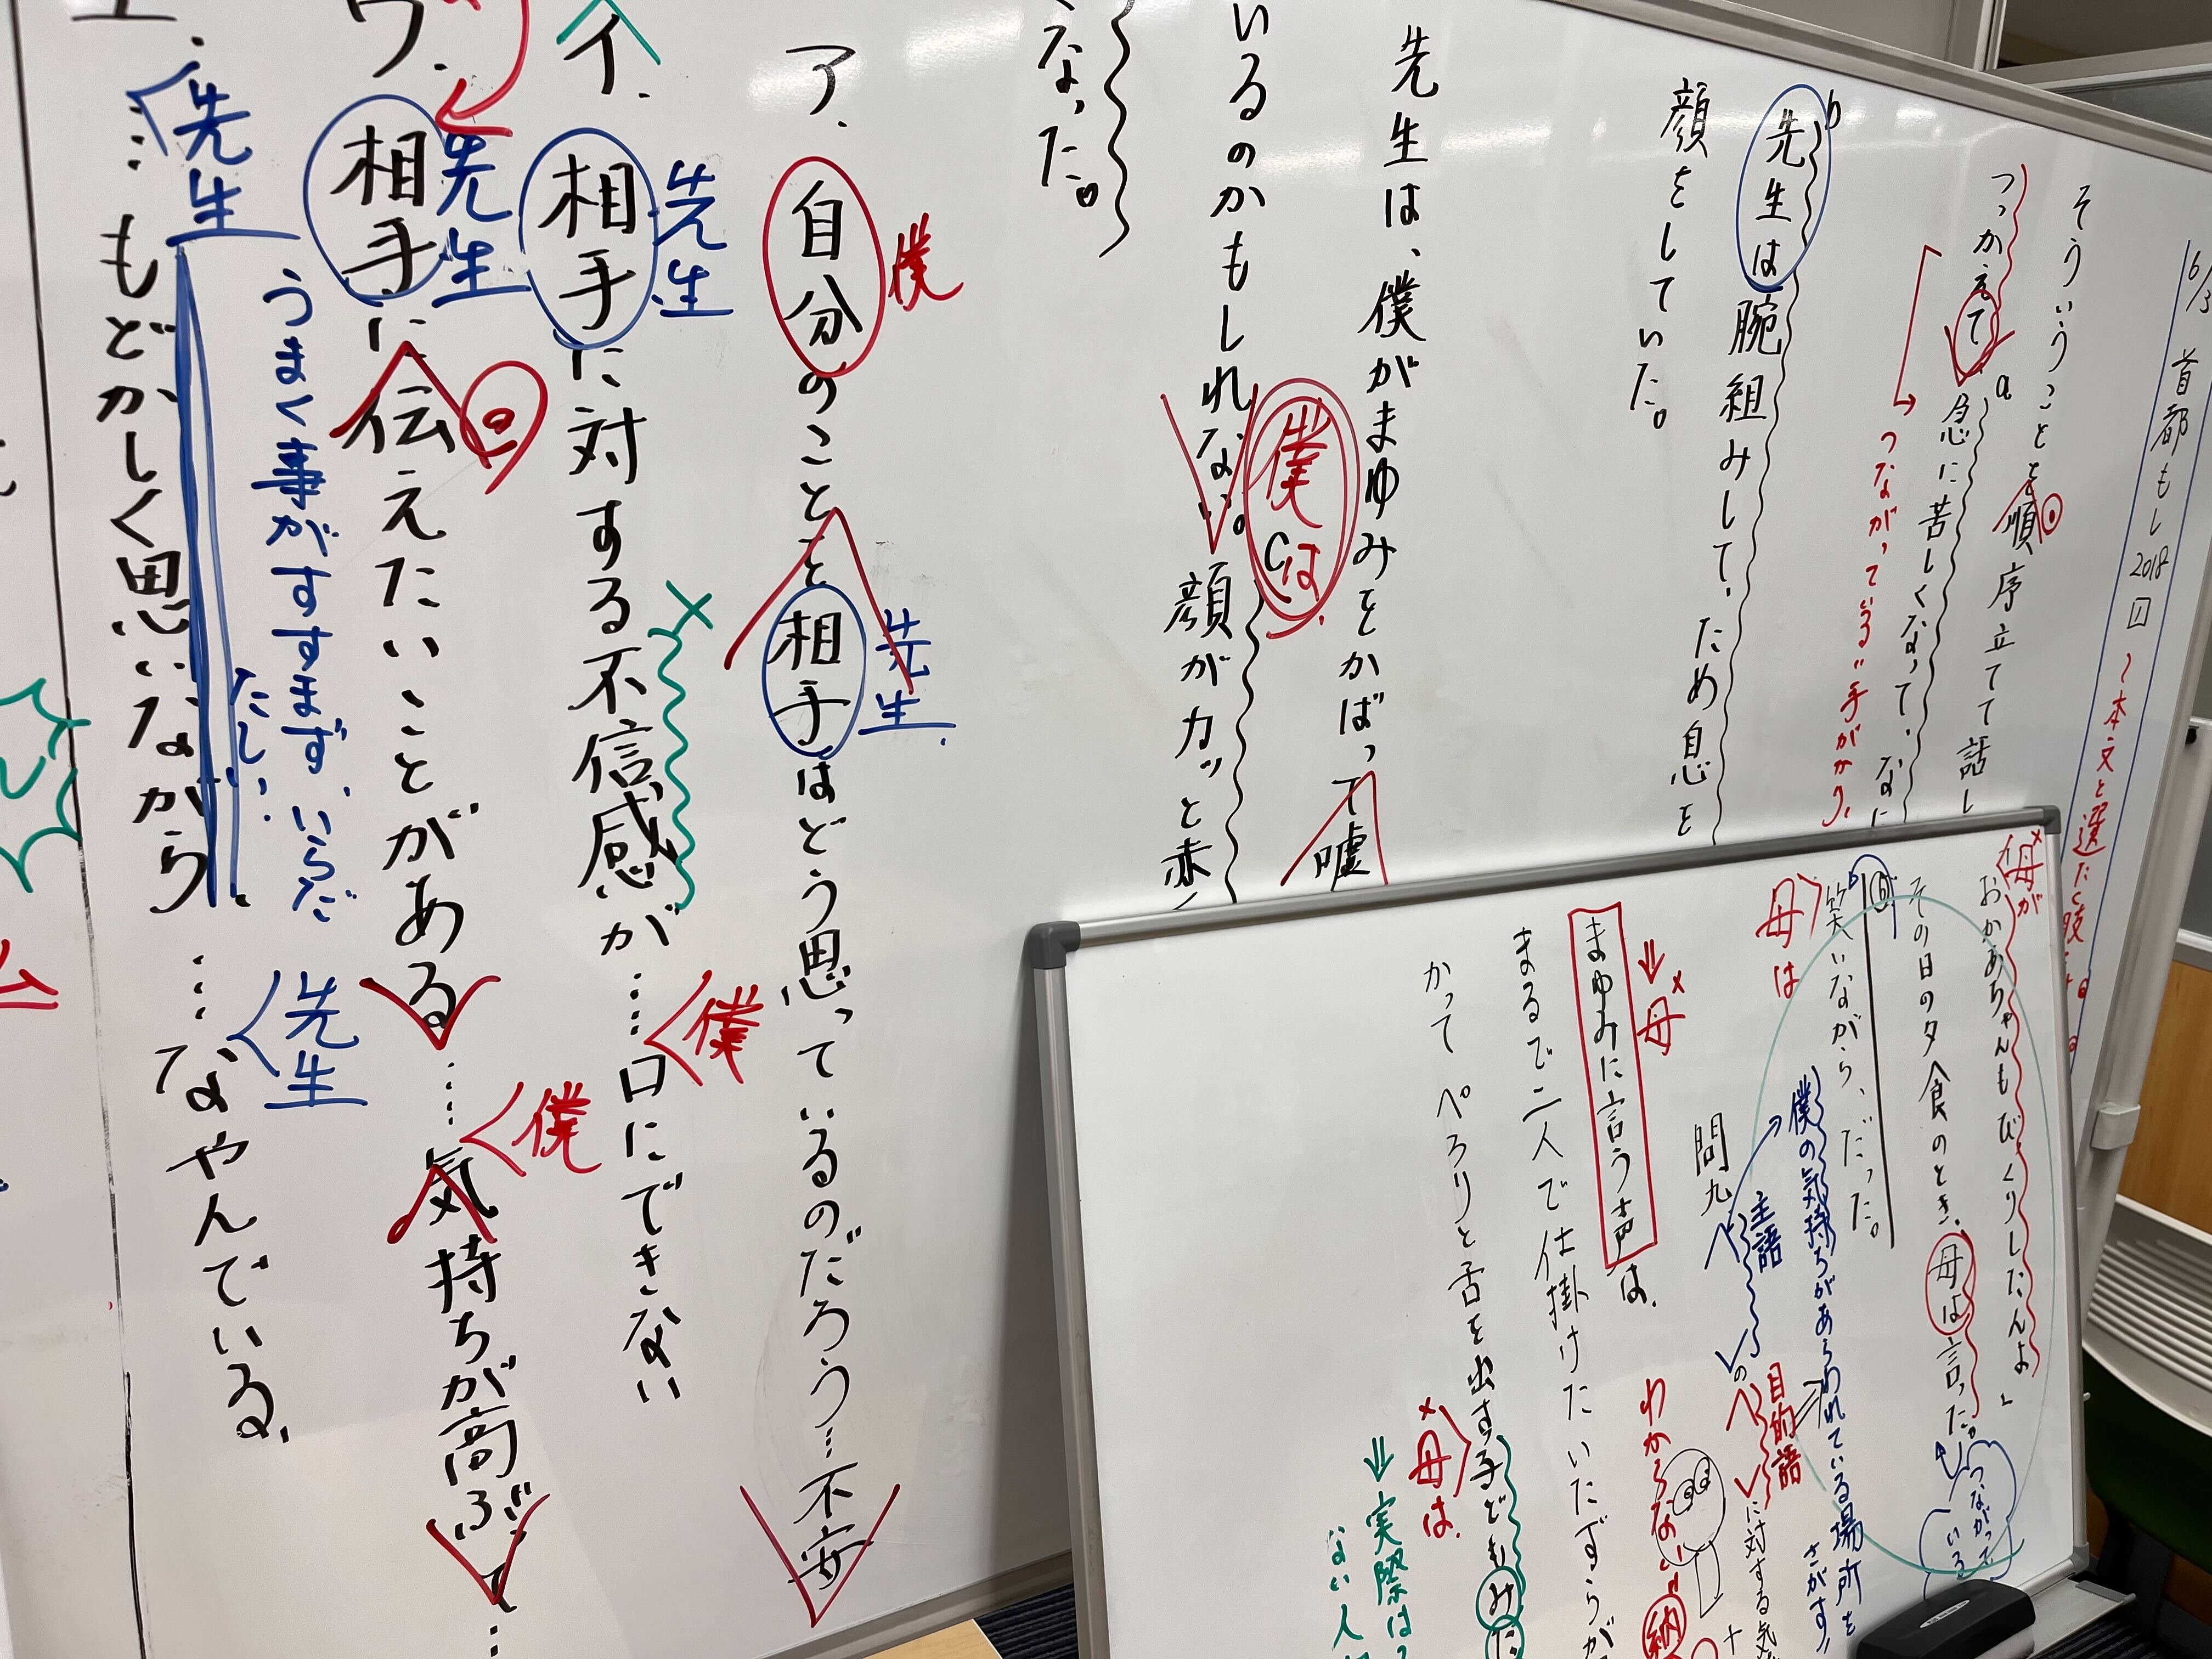 6/3 首都もし2018
本文と選たく肢
そういうことを順序立てて話し
つっかえて急に苦しくなって、なに
a
つながっている"手がかり、
b
先生は腕組みして、ため息を
顔をしていた。
先生は、僕がまゆみをかばって嘘
いるのかもしれない。顔がカッと赤
僕は、
c
なった。
ア.自分のことと相手はどう思っているのだろう…不安
僕
先生
イ.相手に対する不信感が……口にできない
先生
×
僕
ウ.相手に伝えたいことがある……気持ちが高ぶって…
先生
僕
うまく事がすすまず、いらだ
たしい.
エ.……もどかしく思いながら…なやんでいる、
先生
先生
×
母が
おかあちゃんもびっくりしたんよ」
その日の夕食のとき、母は言った。
つながって
いる
b
笑いながら、だった。
母は
僕の気持ちがあらわれている場所を
さがす!!
問九
主語
の
目的語
に対する気
まゆみに言う声は、
×
母
わからない!!
納
まるで二人で仕掛けたいたずらが
かって ぺろりと舌を出す子どもみた
×
母は、
実際は、
ない人